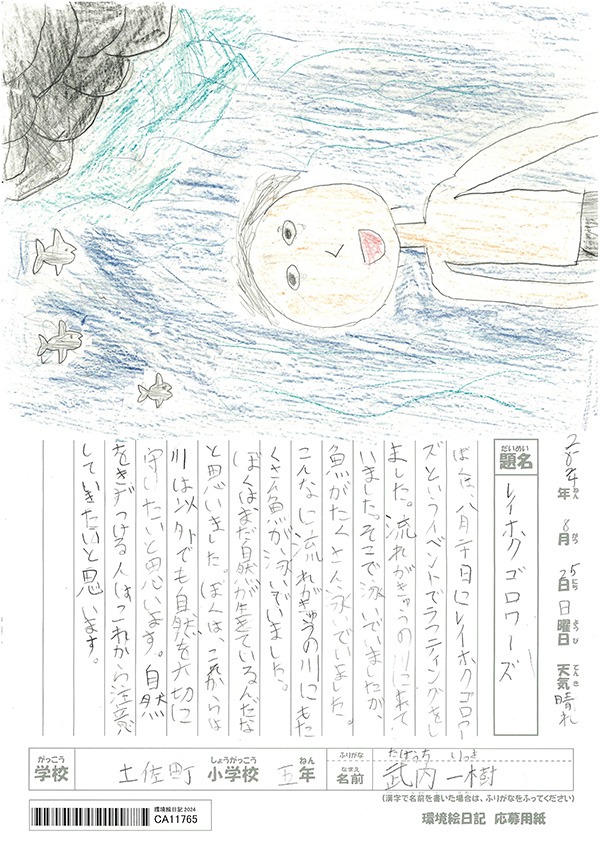 年ねん 8月がつ 25日にち 日曜日ようび 天気てんき 晴れ
題名だいめい レイホクゴロワーズ
ぼくは、八月二十日にレイホクゴロワー
ズというイベントでラフティングをし
ました。流れがきゅうの川に来て
いました。そこで泳いでいましたが、
魚がたくさん泳いでいました。
こんなに流れがきゅうの川にもた
くさん魚が泳いでいました。
ぼくはまだ自然が生きているんだな
と思いました。ぼくは、これからは
川は以外でも自然を大切に
守りたいと思います。自然
をきずつける人はこれから注意
していきたいと思います。
がっこう しょうがっこう ねん
学校 土佐町 小学校 五年
ふりがな たけうち いつき
なまえ
名前 武内 一樹
(漢字で名前を書いた場合は、ふりがなをふってください)
環境絵日記 応募用紙
環境絵日記2024
CA11765